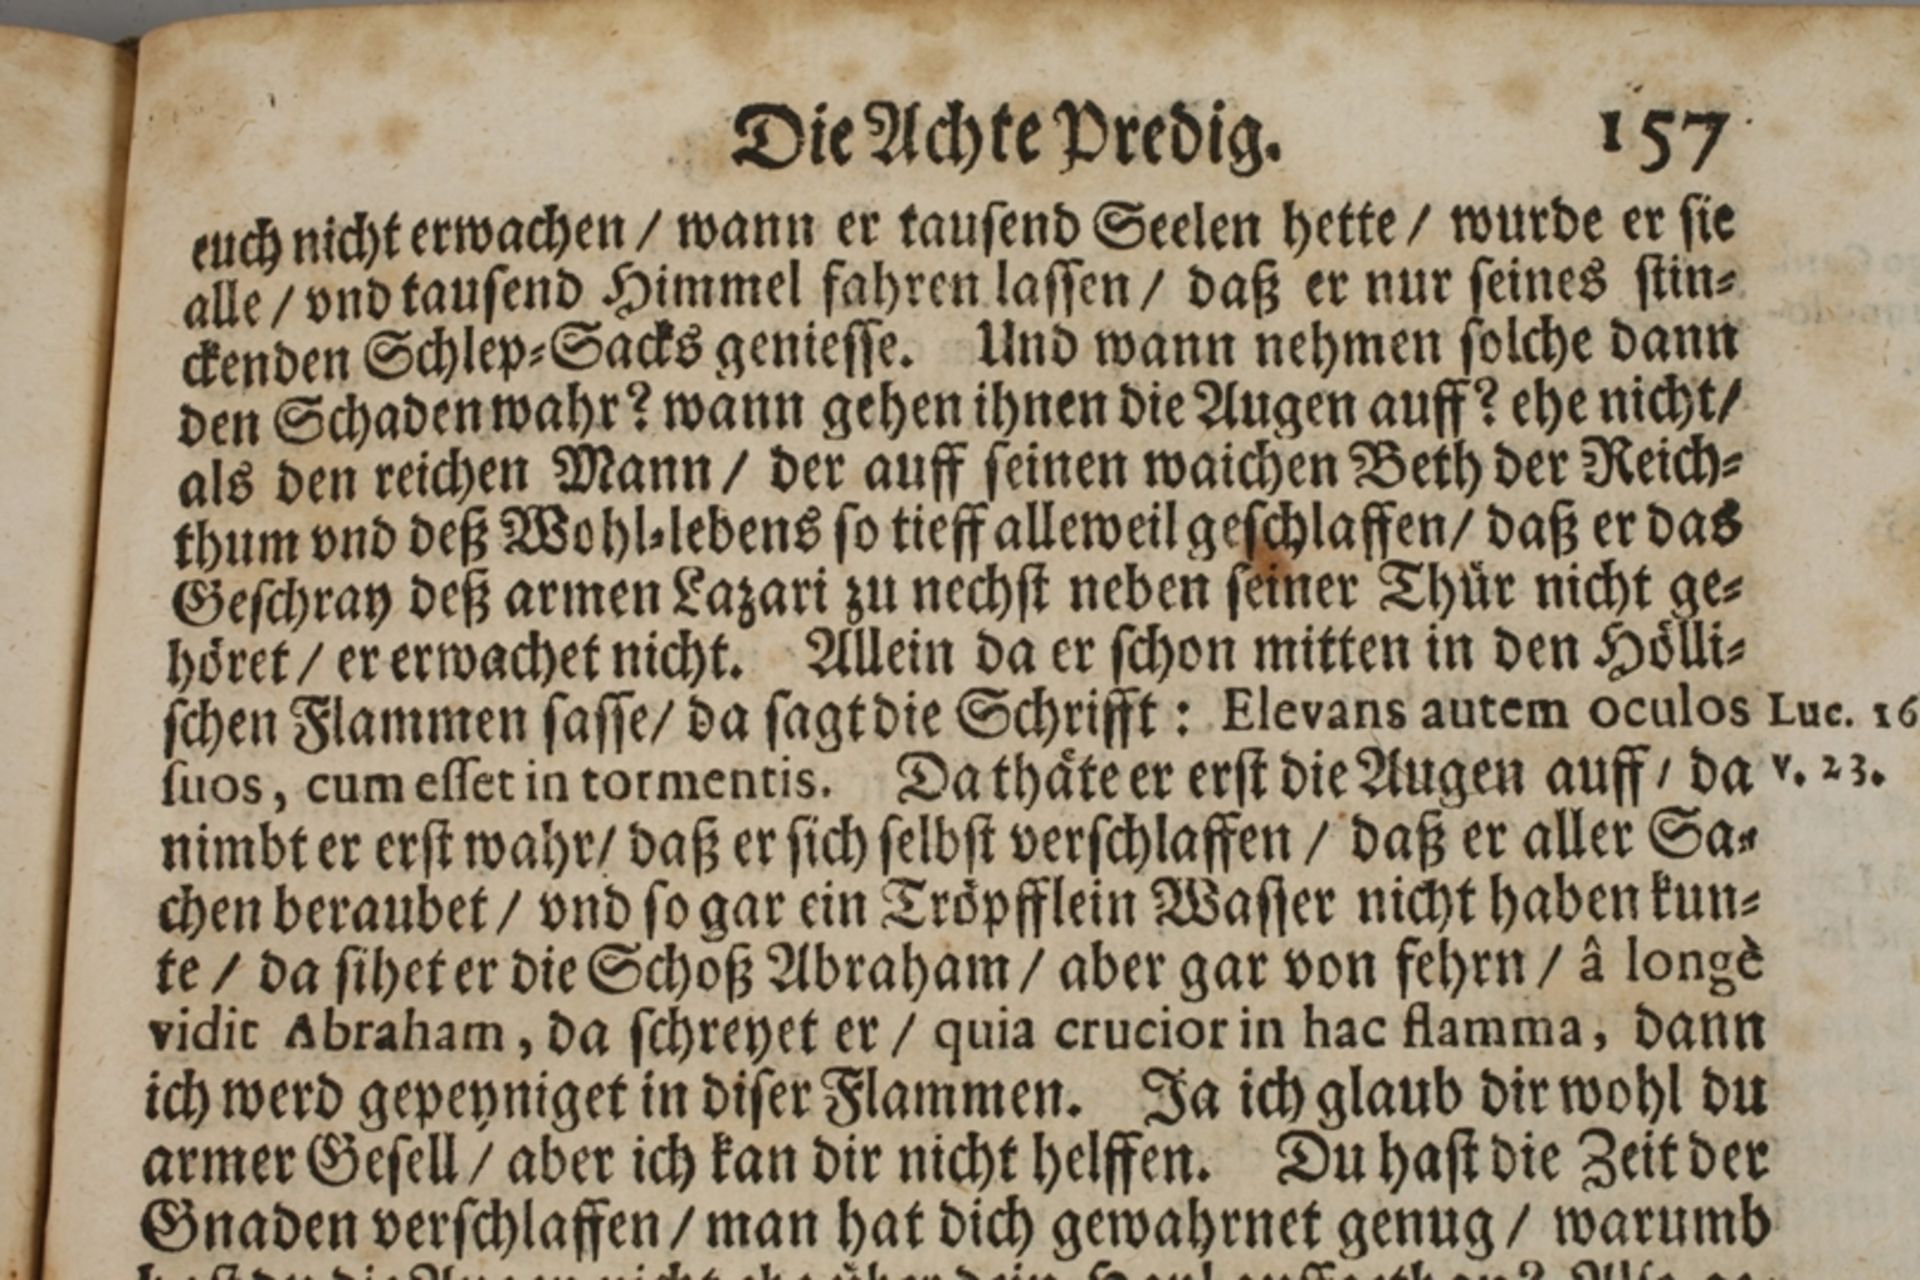 Die Achte Predig. 157
euch nicht erwachen / wann er tausend Seelen hette / wurde er sie
alle / vnd tausend Himmel fahren lassen / daß er nur seines stin-
ckenden Schlep-Sacks geniesse. Und wann nehmen solche dann
den Schaden wahr? wann gehen ihnen die Augen auff? ehe nicht /
als den reichen Mann / der auff seinen waichen Beth der Reich-
thum vnd deß Wohl-lebens so tieff alleweil geschlaffen / daß er das
Geschray deß armen Lazari zu nechst neben seiner Thür nicht ge-
höret / er erwachet nicht. Allein da er schon mitten in den Hölli-
schen Flammen sasse / da sagt die Schrifft : Elevans autem oculos Luc. 16
suos, cum esset in tormentis. Da thäte er erst die Augen auff / da v. 23.
nimbt er erst wahr / daß er sich selbst verschlaffen / daß er aller Sa-
chen beraubet / vnd so gar ein Tröpfflein Wasser nicht haben kun-
te / da sihet er die Schoß Abraham / aber gar von fehrn / â longè
vidit Abraham, da schreyet er / quia crucior in hac flamma, dann
ich werd gepeyniget in diser Flammen. Ja ich glaub dir wohl du
armer Gesell / aber ich kan dir nicht helffen. Du hast die Zeit der
Gnaden verschlaffen / man hat dich gewahrnet genug / warumb